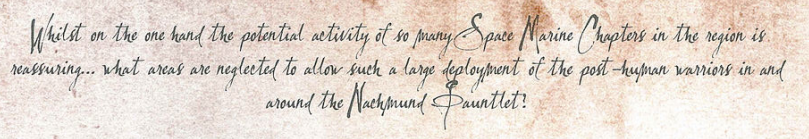 Whilst on the one hand the potential activity of so many Space Marine Chapters in the region is
reassuring... what areas are neglected to allow such a large deployment of the post-human warriors in and
around the Nachmund Gauntlet?